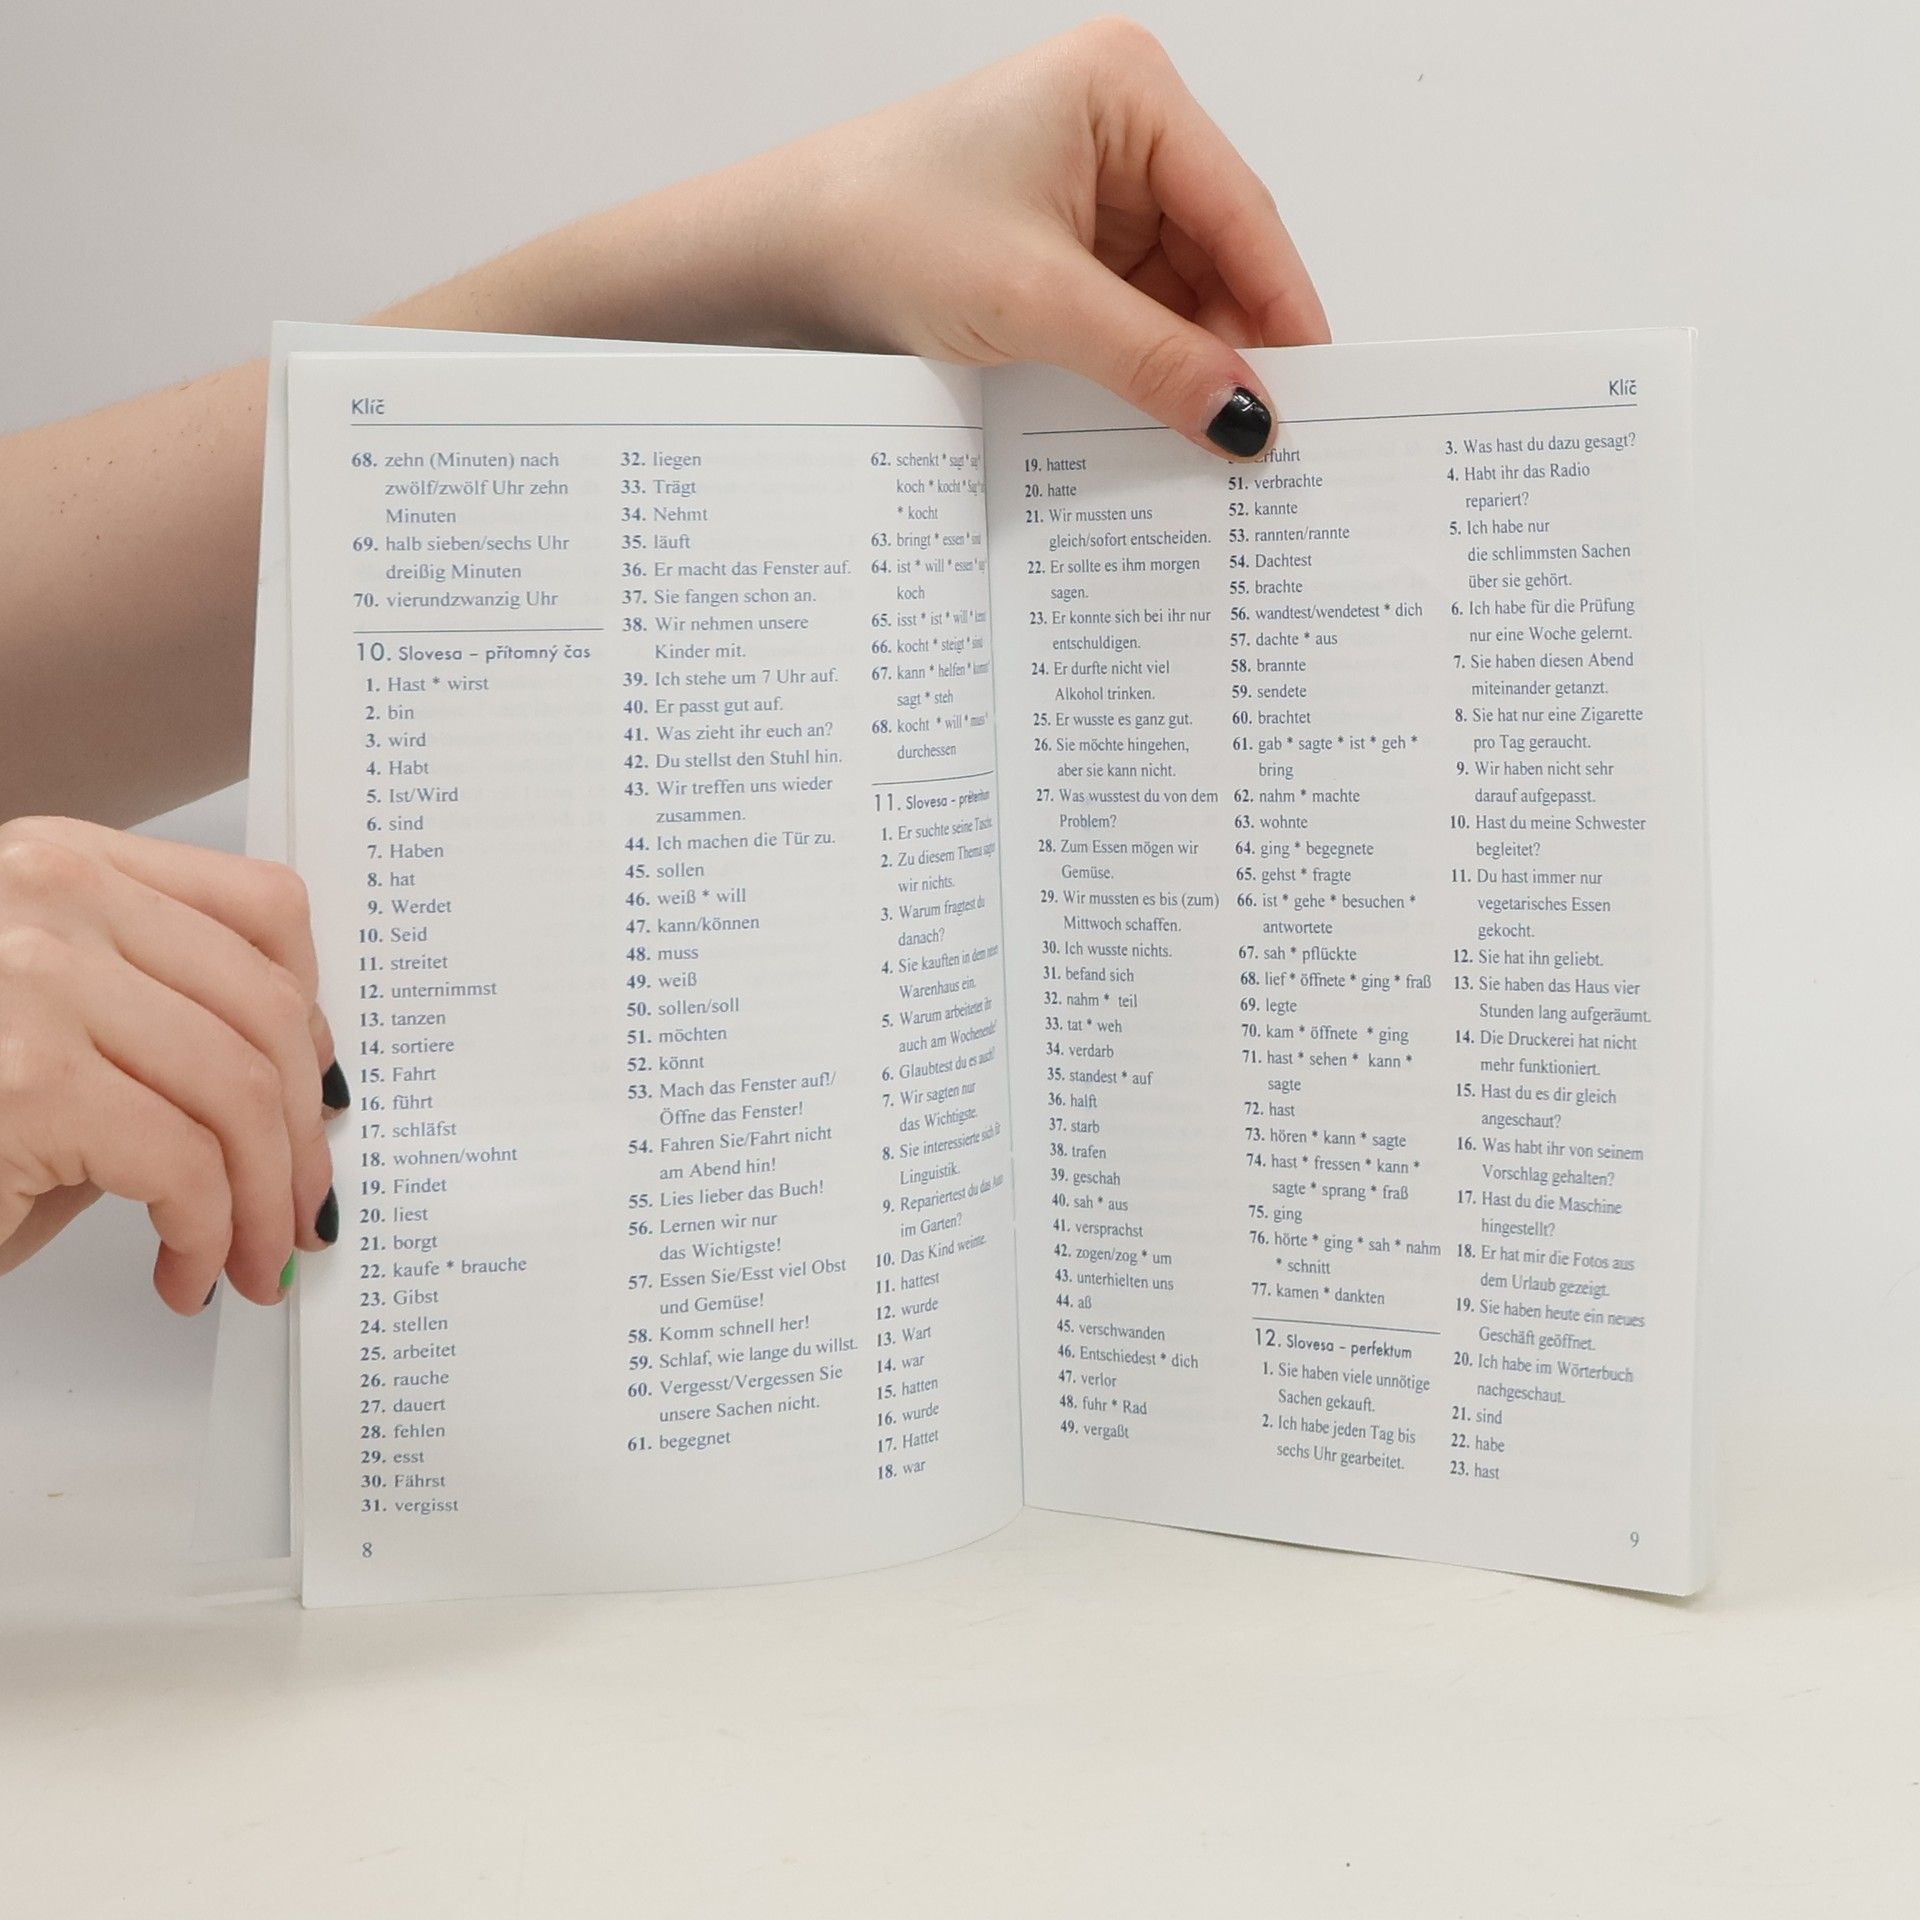 Klíč
68. zehn (Minuten) nach
zwölf/zwölf Uhr zehn
Minuten
69. halb sieben/sechs Uhr
dreißig Minuten
70. vierundzwanzig Uhr
10. Slovesa – přítomný čas
1. Hast * wirst
2. bin
3. wird
4. Habt
5. Ist/Wird
6. sind
7. Haben
8. hat
9. Werdet
10. Seid
11. streitet
12. unternimmst
13. tanzen
14. sortiere
15. Fahrt
16. führt
17. schläfst
18. wohnen/wohnt
19. Findet
20. liest
21. borgt
22. kaufe * brauche
23. Gibst
24. stellen
25. arbeitet
26. rauche
27. dauert
28. fehlen
29. esst
30. Fährst
31. vergisst
32. liegen
33. Trägt
34. Nehmt
35. läuft
36. Er macht das Fenster auf.
37. Sie fangen schon an.
38. Wir nehmen unsere
Kinder mit.
39. Ich stehe um 7 Uhr auf.
40. Er passt gut auf.
41. Was zieht ihr euch an?
42. Du stellst den Stuhl hin.
43. Wir treffen uns wieder
zusammen.
44. Ich machen die Tür zu.
45. sollen
46. weiß * will
47. kann/können
48. muss
49. weiß
50. sollen/soll
51. möchten
52. könnt
53. Mach das Fenster auf!/
Öffne das Fenster!
54. Fahren Sie/Fahrt nicht
am Abend hin!
55. Lies lieber das Buch!
56. Lernen wir nur
das Wichtigste!
57. Essen Sie/Esst viel Obst
und Gemüse!
58. Komm schnell her!
59. Schlaf, wie lange du willst.
60. Vergesst/Vergessen Sie
unsere Sachen nicht.
61. begegnet
62. schenkt * sagt *
koch * kocht *
* kocht
63. bringt * essen *
64. ist * will * essen *
koch
65. isst * ist * will *
66. kocht * steigt *
67. kann * helfen *
sagt * steh
68. kocht * will * muss *
durchessen
11. Slovesa – préteritum
1. Er suchte seine
2. Zu diesem Thema
wir nichts.
3. Warum fragtest du
danach?
4. Sie kauften in dem
Warenhaus ein.
5. Warum arbeitetet ihr
auch am Wochenende?
6. Glaubtest du es auch?
7. Wir sagten nur
das Wichtigste.
8. Sie interessierte sich für
Linguistik.
9. Repariertest du das Auto
im Garten?
10. Das Kind weinte.
11. hattest
12. wurde
13. Wart
14. war
15. hatten
16. wurde
17. Hattet
18. war
8
Klíč
19. hattest
20. hatte
21. Wir mussten uns
gleich/sofort entscheiden.
22. Er sollte es ihm morgen
sagen.
23. Er konnte sich bei ihr nur
entschuldigen.
24. Er durfte nicht viel
Alkohol trinken.
25. Er wusste es ganz gut.
26. Sie möchte hingehen,
aber sie kann nicht.
27. Was wusstest du von dem
Problem?
28. Zum Essen mögen wir
Gemüse.
29. Wir mussten es bis (zum)
Mittwoch schaffen.
30. Ich wusste nichts.
31. befand sich
32. nahm * teil
33. tat * weh
34. verdarb
35. standest * auf
36. halft
37. starb
38. trafen
39. geschah
40. sah * aus
41. versprachst
42. zogen/zog * um
43. unterhielten uns
44. aß
45. verschwanden
46. Entschiedest * dich
47. verlor
48. fuhr * Rad
49. vergaßt
51. verbrachte
52. kannte
53. rannten/rannte
54. Dachtest
55. brachte
56. wandtest/wendetest * dich
57. dachte * aus
58. brannte
59. sendete
60. brachtet
61. gab * sagte * ist * geh *
bring
62. nahm * machte
63. wohnte
64. ging * begegnete
65. gehst * fragte
66. ist * gehe * besuchen *
antwortete
67. sah * pflückte
68. lief * öffnete * ging * fraß
69. legte
70. kam * öffnete * ging
71. hast * sehen * kann *
sagte
72. hast
73. hören * kann * sagte
74. hast * fressen * kann *
sagte * sprang * fraß
75. ging
76. hörte * ging * sah * nahm
* schnitt
77. kamen * dankten
12. Slovesa – perfektum
1. Sie haben viele unnötige
Sachen gekauft.
2. Ich habe jeden Tag bis
sechs Uhr gearbeitet.
3. Was hast du dazu gesagt?
4. Habt ihr das Radio
repariert?
5. Ich habe nur
die schlimmsten Sachen
über sie gehört.
6. Ich habe für die Prüfung
nur eine Woche gelernt.
7. Sie haben diesen Abend
miteinander getanzt.
8. Sie hat nur eine Zigarette
pro Tag geraucht.
9. Wir haben nicht sehr
darauf aufgepasst.
10. Hast du meine Schwester
begleitet?
11. Du hast immer nur
vegetarisches Essen
gekocht.
12. Sie hat ihn geliebt.
13. Sie haben das Haus vier
Stunden lang aufgeräumt.
14. Die Druckerei hat nicht
mehr funktioniert.
15. Hast du es dir gleich
angeschaut?
16. Was habt ihr von seinem
Vorschlag gehalten?
17. Hast du die Maschine
hingestellt?
18. Er hat mir die Fotos aus
dem Urlaub gezeigt.
19. Sie haben heute ein neues
Geschäft geöffnet.
20. Ich habe im Wörterbuch
nachgeschaut.
21. sind
22. habe
23. hast
9